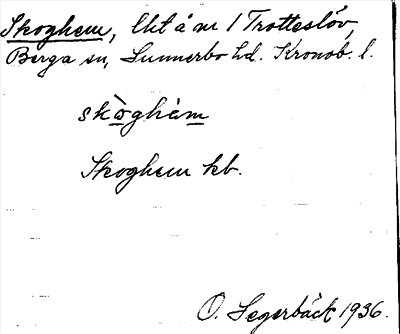 Skoghem, lht å nr 1 Trotteslöv,
Berga sn, Sunnerbo hd. Kronob. l.
skòghàm
Skoghem kb.
O. Segerbäck 1936.